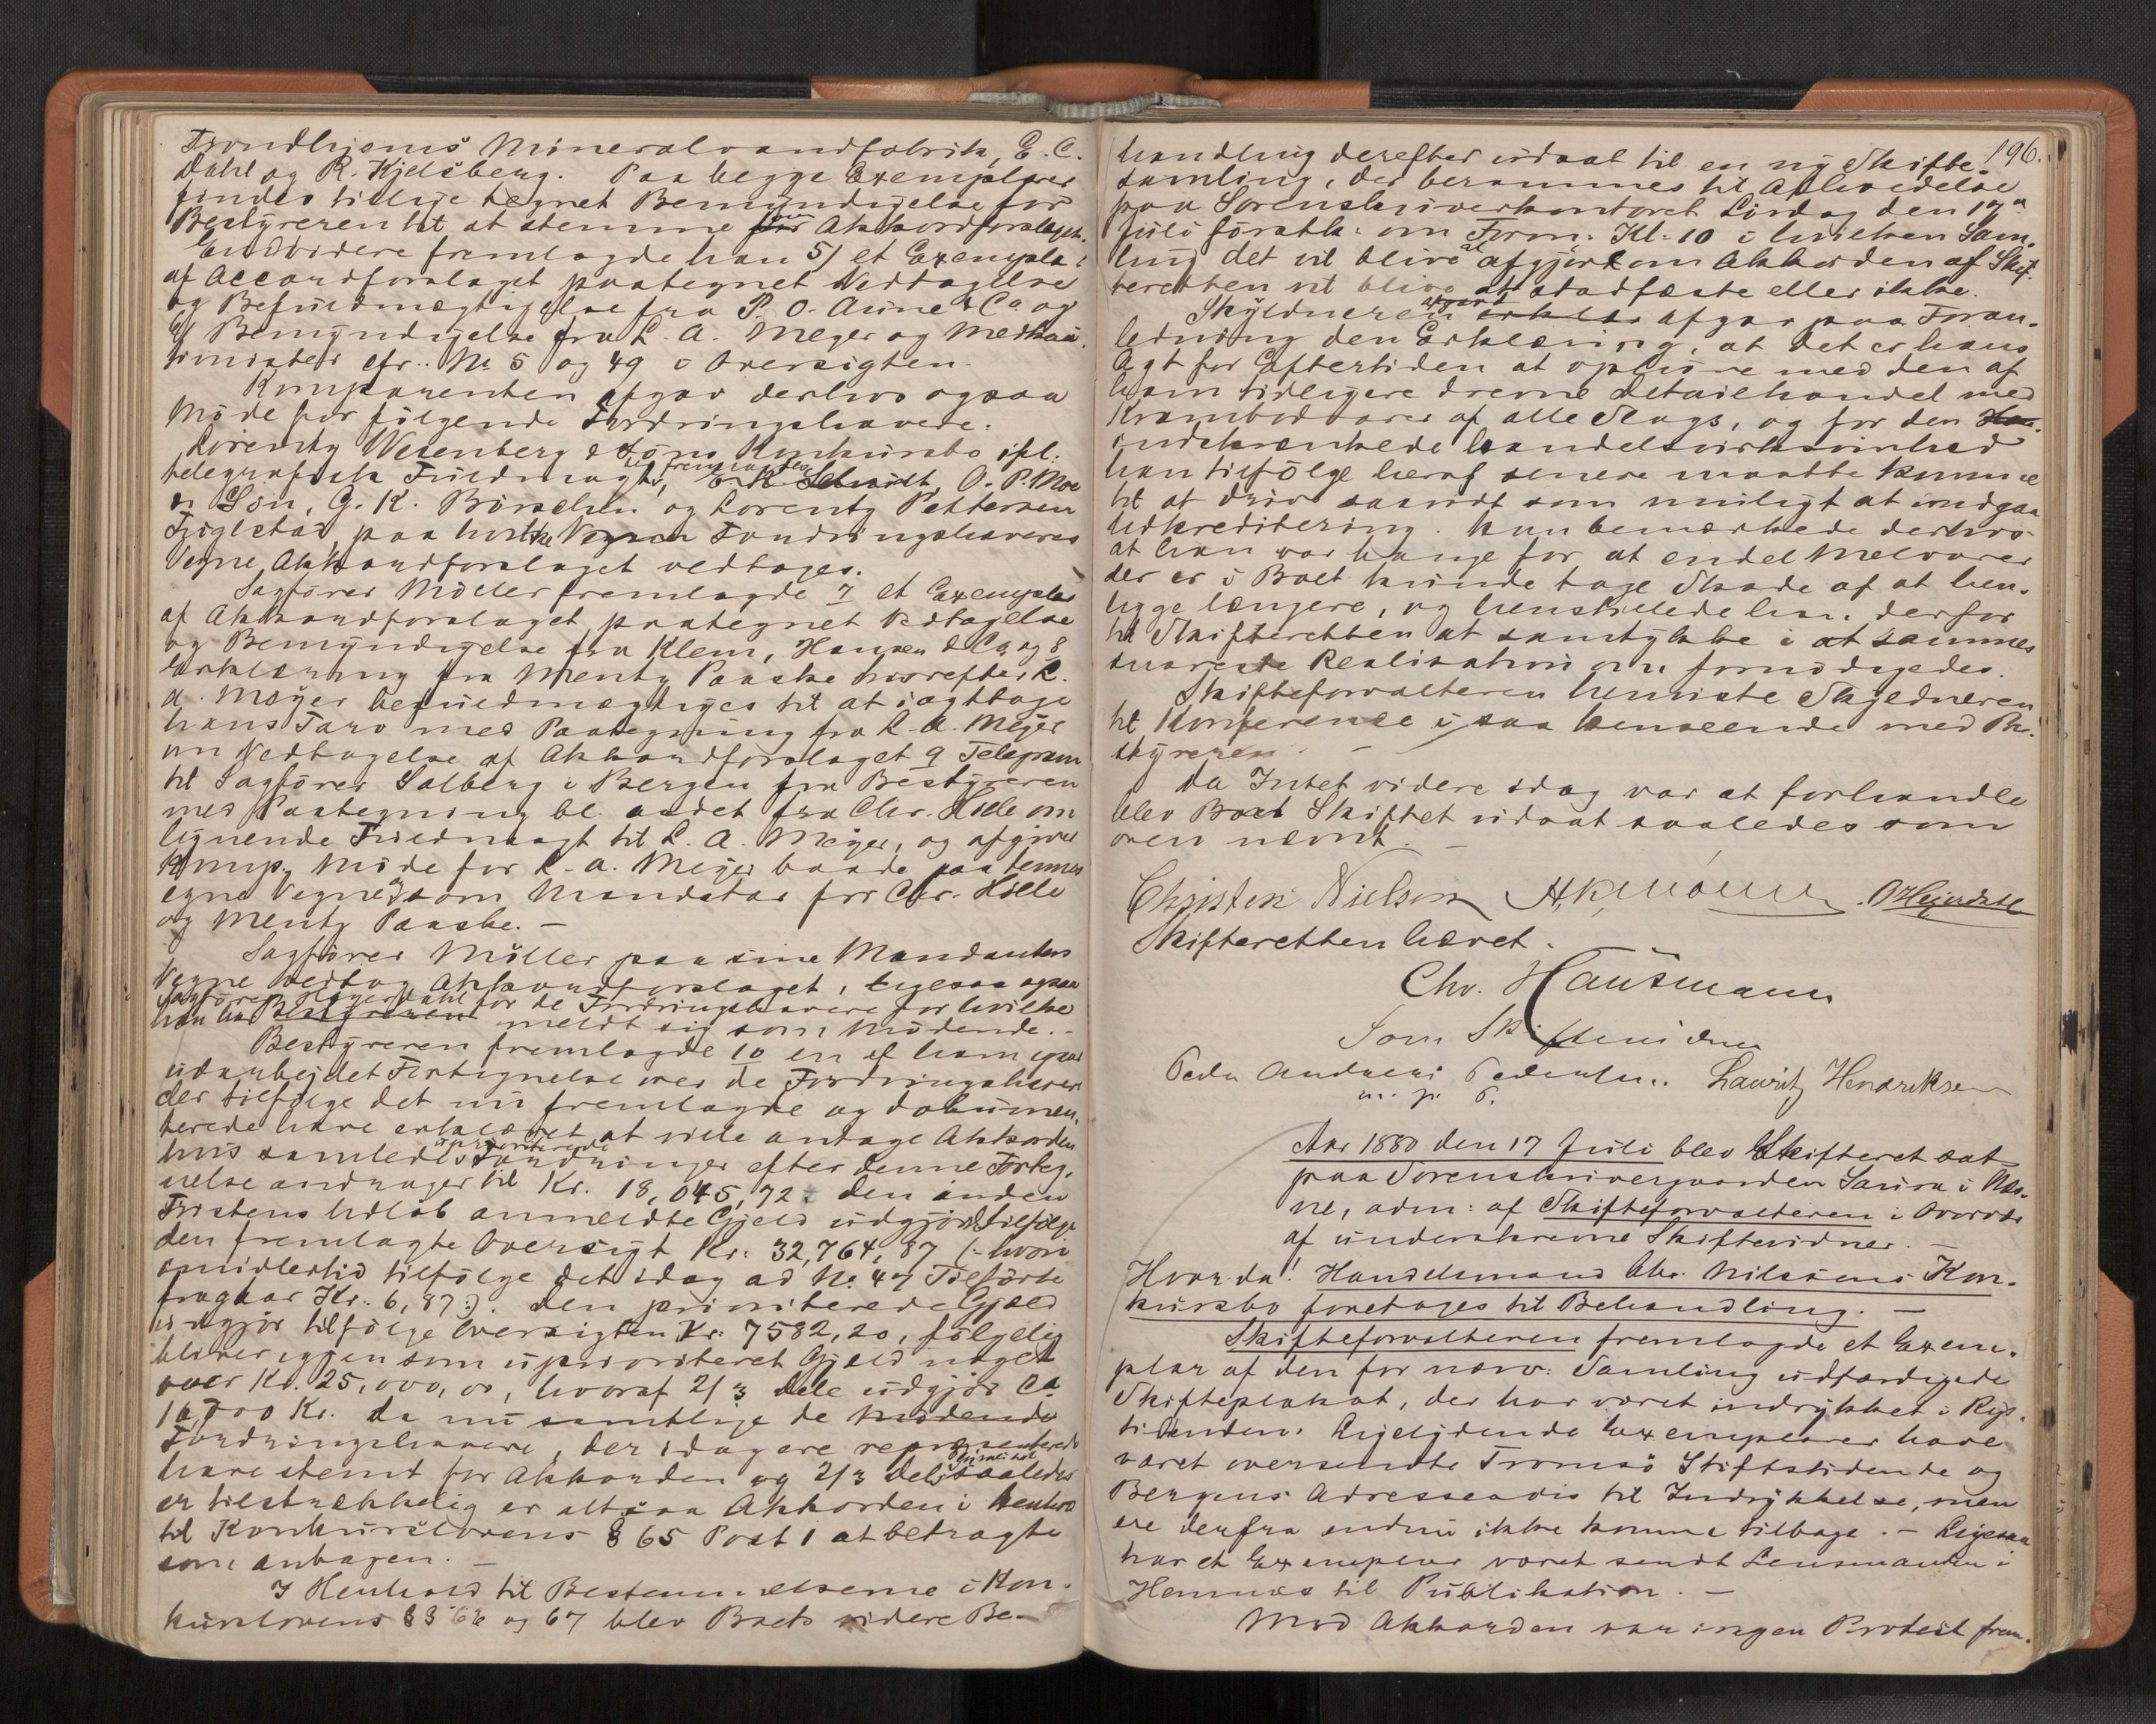 Trondhjems Mineralvandfabrik, E. C.
Dahl og R. Kjelsberg. Paa begge Exemplarer
findes tillige tegnet Bemyndigelse for
Bestyreren til at stemme for Akkordforslaget.
Endvidere fremlagde han 5) et Exemplar
af Accordforslaget paategnet Vedtagelse
og Befuldmægtigelse fra P. O. Aune & Co og
6) Bemyndigelse fra L. A. Meyer og
cfr. No 5 og 49 i Oversigten.
Komparenten afgav derhos ogsaa
Møde for følgende Fordringshavere:
Lorentz Wesenberg & Søns Konkursbo ifl.
telegrafisk Fuldmagt, E. K. Schmidt, O. P. Moe
& Søn, G. K. Börschen og Lorentz Pettersen
paa hvilke Fordringshaveres
Vegne Akkordforslaget vedtages.
Sagfører Møller fremlagde 7 et Exemplar
af Akkordforslaget paategnet Vedtagelse
og Bemyndigelse fra Klem, Hansen & Co, og 8
Erklæring fra Mentz Paaske hvorefter L.
A. Meyer befuldmægtiges til at iagttage
hans Tarv med Paategning fra L. A. Meyer
om Vedtagelse af Akkordforslaget 9 Telegram
til Sagfører Salberg i Bergen fra Bestyreren
med Paategning bl. andet fra Chr. Holle om
lignende Fuldmagt til L. A. Meyer, og afgiver
Komp. Møde for L. A. Meyer baade paa dennes
egne Vegne og som Mandatar for Chr. Holle
og Mentz Paaske. –
Sagfører Møller paa sine Mandanters
Vegne vedtog Akkordforslaget, ligesaa ogsaa
Sagfører Heyerdahl for de Fordringshavere for hvilke
han har Bestyreren meldt sig som mødende. –
Bestyreren fremlagde 10 en af ham
udarbejdet Fortegnelse over de Fordringshavere
der tilfølge det nu fremlagde og dokumen-
terede have erklæret at ville antage Akkorden
hvis samlede uprioriterede Fordringer efter denne Forteg-
nelse andrager til Kr. 18,045,72. Den inden
Fristens Udløb anmeldte Gjæld udgjør tilfølge
den fremlagte Oversigt Kr. 32,764,87 (: hvori
imidlertid tilfølge det idag ad No. 47 Tilførte
fragaar Kr. 6,87:). Den prioriterede Gjæld
udgjør tilfølge Oversigten Kr. 7582,20, følgelig
bliver igjen som uprioriteret Gjæld noget
over Kr. 25,000,00, hvoraf 2/3 Dele udgjør Ca
16,700 Kr. Da nu samtlige de mødende
Fordringshavere, der idag ere repræsenterede
have stemt for Akkorden og 2/3 Dele saaledes
er tilstrækkelig er altsaa Akkorden i Henhold
til Konkurslovens § 65 Post 1 at betragte
som antagen. –
I Henhold til Bestemmelserne i Kon-
kurslovens §§ 66 og 67 blev Boets videre Be-
196.
handling derefter udsat til en ny Skifte-
samling, der berammes til Afholdelse
paa Sorenskriverkontoret Lørdag den 17de
Juli førstk: om Form: Kl: 10 i hvilken Sam-
ling det vil blive afgjort om Akkorden af Skif-
teretten vil blive at stadfæste eller ikke.
Skyldneren erklær afgav paa Foran-
ledning den Erklæring, at det er hans
Agt for Eftertiden at ophøre med den af
ham tidligere drevne Detailhandel med
Krambodvarer af alle Slags, og for den Han-
indskrænkede Handelsvirksomhed
han tilfølge heraf senere maatte komme
til at drive saavidt som muligt at undgaa
Udkreditering. Han bemærkede derhos
at han var bange for at endel Melvarer
der er i Boet kunde tage Skade af at hen-
ligge længere, og henstillede han derfor
til Skifteretten at samtykke i at sammes
snareste Realisation om fornødiges.
Skifteforvalteren henviste Skyldneren
til Konference i saa Henseende med Be-
styreren. –
Da Intet videre idag var at forhandle
blev Boet Skiftet udsat saaledes som
oven nævnt. –
Christen Nielsen O Heyerdahl
Skifteretten hævet.
Chr. Hausmann
Som Skiftevidner
Peder Andreas Pedersen. Lauritz Hendriksen
m. p. P.
Aar 1880 den 17 Juli blev Skifteret sat
paa Sorenskrivergaarden Saura i Næs-
ne, adm: af Skifteforvalteren i Overvær
af underskrevne Skiftevidner. –
Hvorda! Handelsmand Chr. Nilsens Kon-
kursbo foretages til Behandling. –
Skifteforvalteren fremlagde et Exem-
plar af den for nærv: Samling udfærdigede
Skifteplakat, der har været indrykket i Rigs-
tidenden. Ligelydende Exemplarer have
været oversendte Tromsø Stiftstidende og
Bergens Adresseavis til Indrykkelse, men
ere derfra endnu ikke komne tilbage. – Ligesaa
har et Exemplar været sendt Lensmanden i
Hemnæs til Publikation. –
Mod Akkorden var ingen Protest frem-